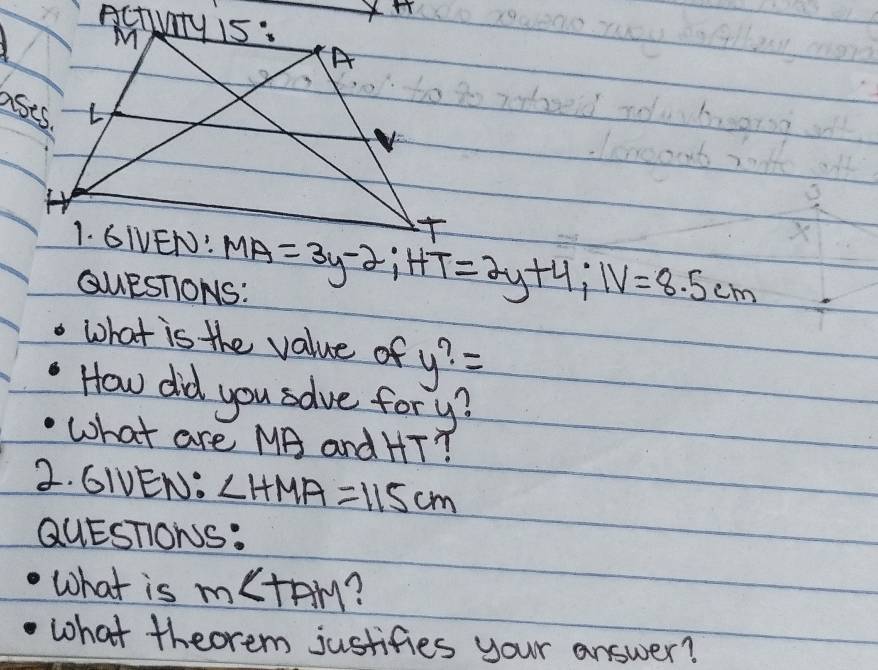 ACTIVITY 15:
M
A
ases.
L
V
H
T
1. GIVEN: MA = 3y-2; HT = 2y+4; IV = 8.5 cm
QUESTIONS:
• What is the value of y? =
• How did you solve for y?
• What are MA and HT?
2. GIVEN: ∠HMA = 115 cm
QUESTIONS:
• What is m∠TAM?
• What theorem justifies your answer?